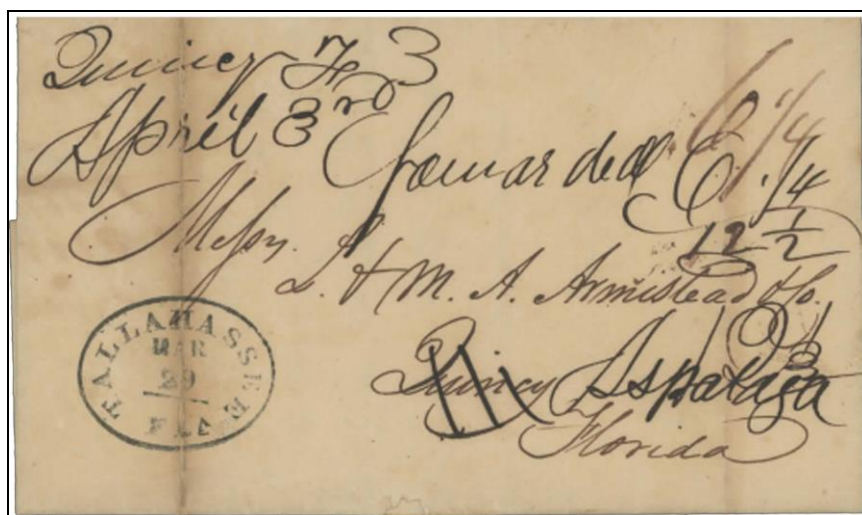 Quincy Fl 3
April 3rd
6 1/4
Forwarded 6 1/4
12 1/2
Messrs.
L. & M. A. Armistead & Co.
Quincy Aspalaga
Florida
TALLAHASSEE
MAR
29
FLA